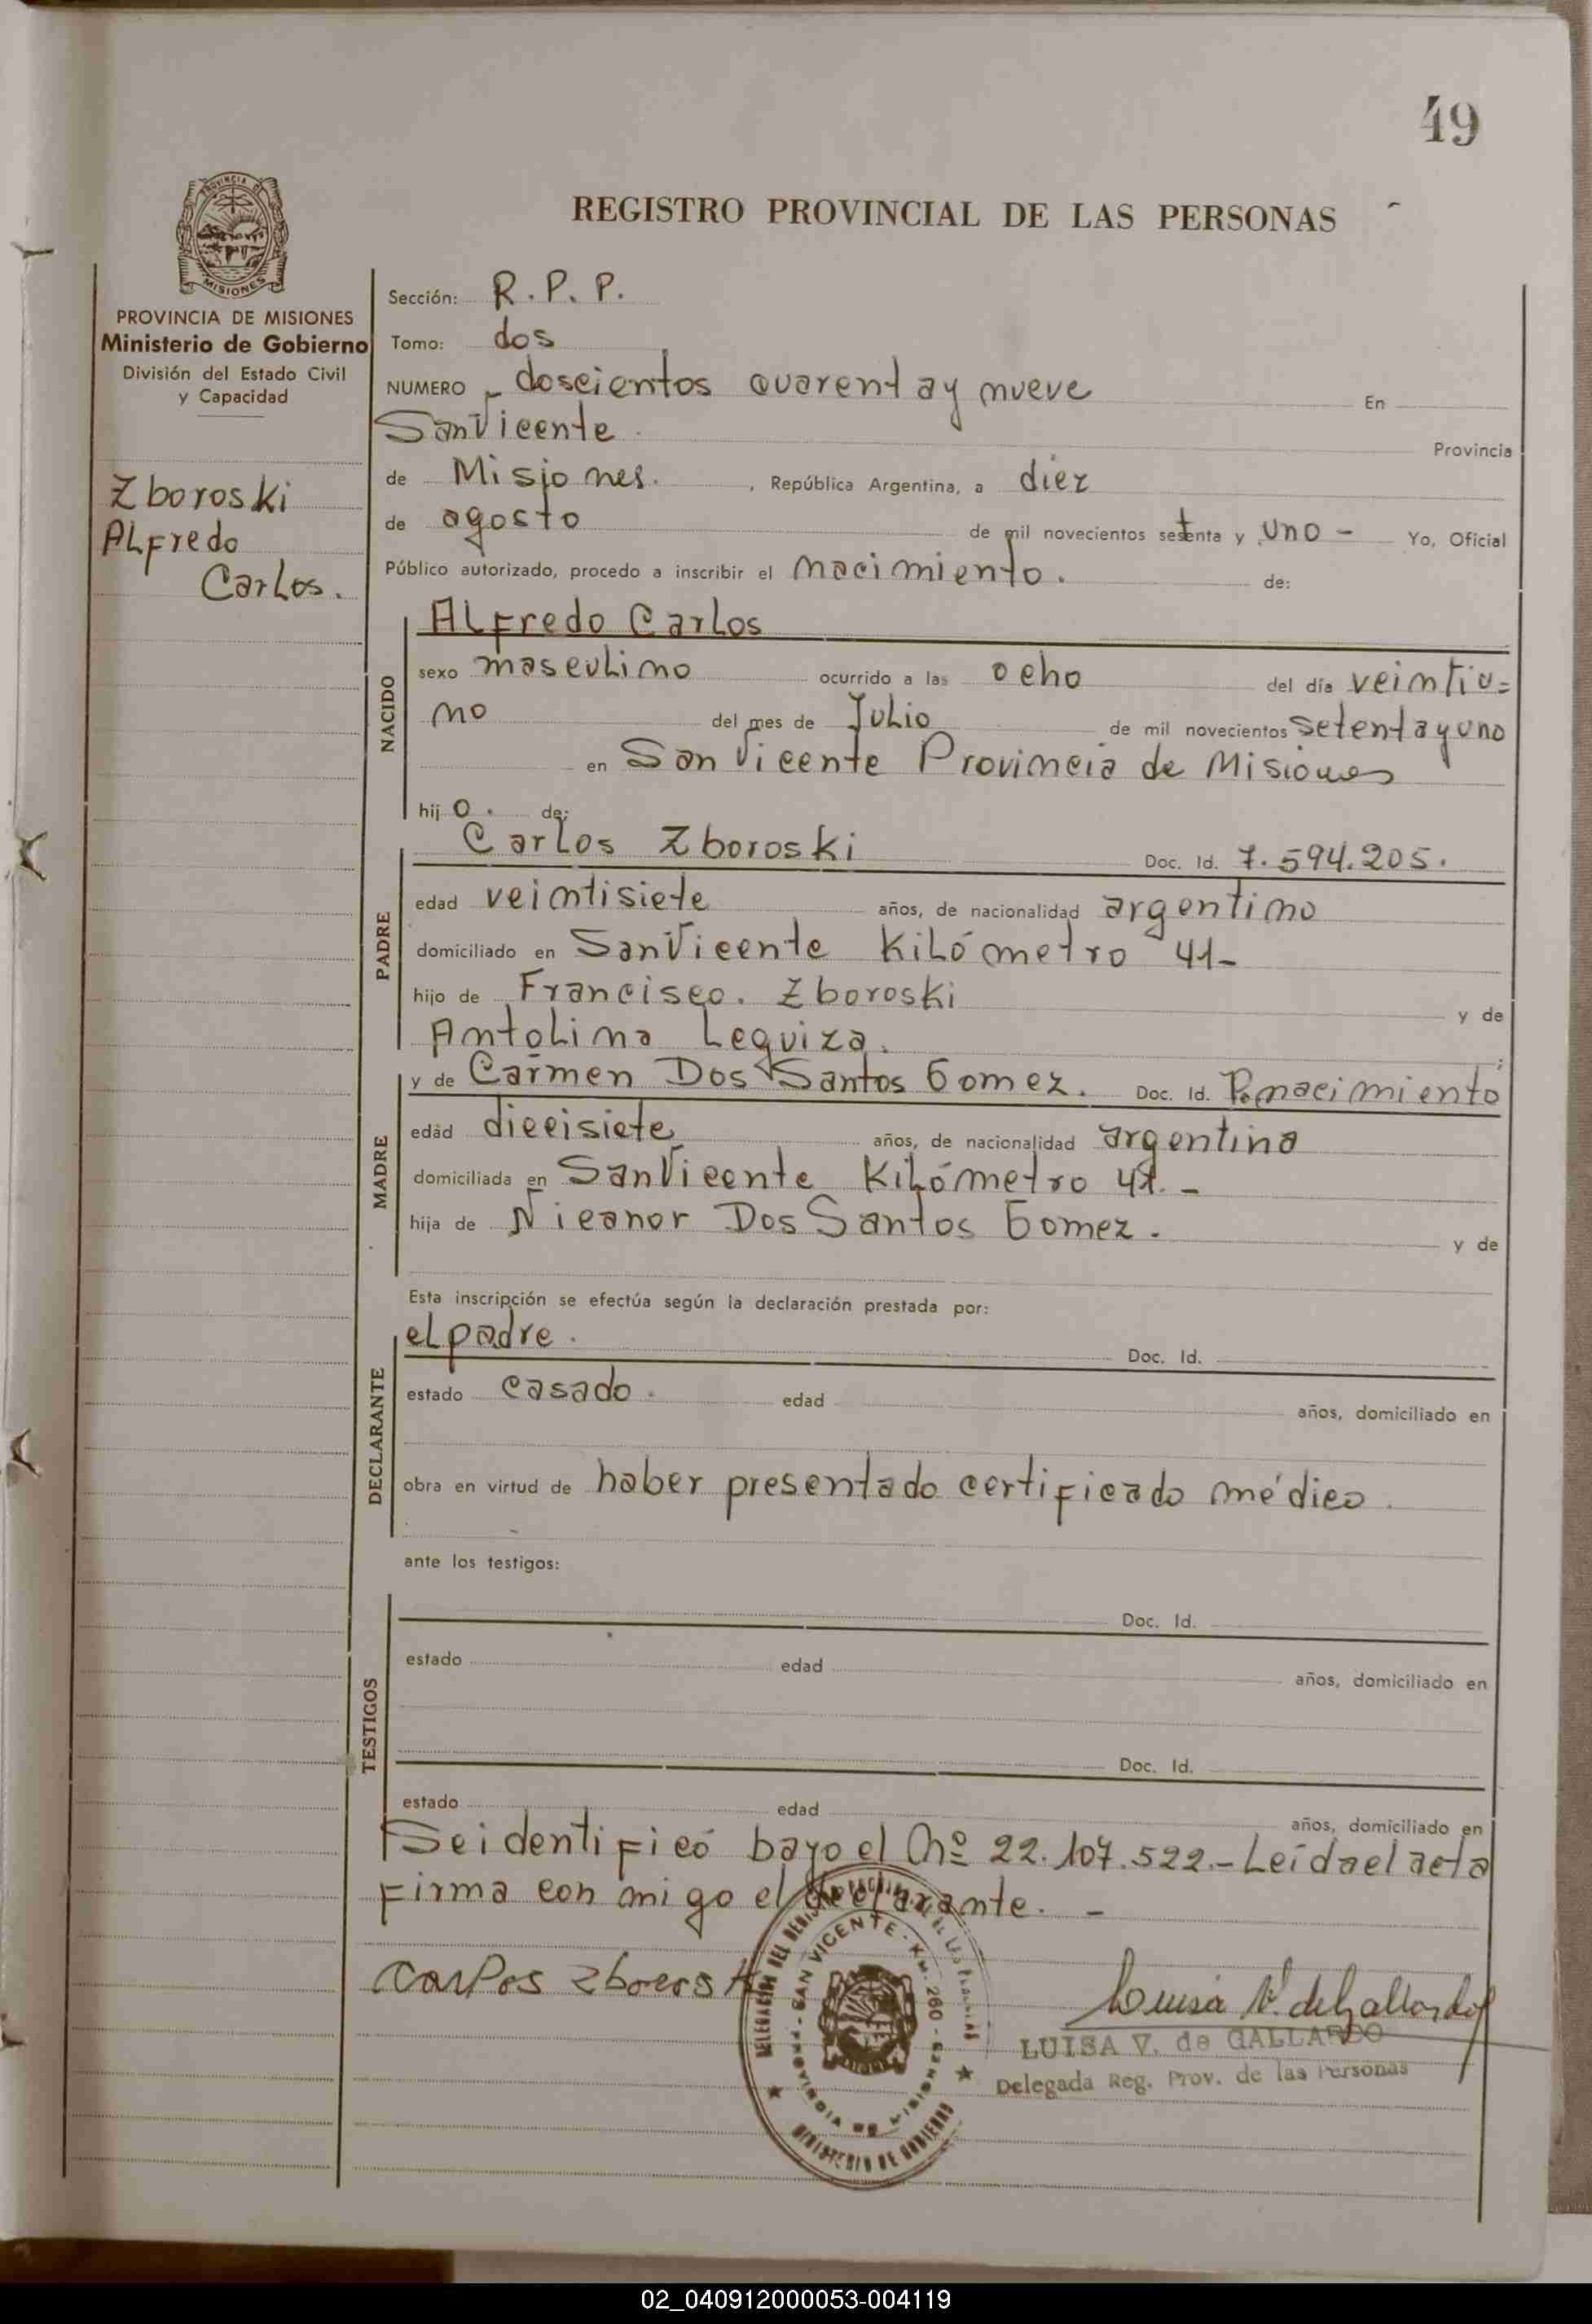 49
REGISTRO PROVINCIAL DE LAS PERSONAS
PROVINCIA DE
MISIONES
PROVINCIA DE MISIONES
Ministerio de Gobierno
División del Estado Civil
y Capacidad
Zboroski
ALfredo
CarLos.
Sección: R. P. P.
Tomo: dos
NUMERO - doscientos cuarentay nueve En
San Vicente. Provincia
de Misiones. , República Argentina, a diez
de agosto de mil novecientos setenta y uno - Yo, Oficial
Público autorizado, procedo a inscribir el nacimiento. de:
NACIDO
ALfredo CarLos
sexo mascuLino ocurrido a las ocho del día veintiu=
no del mes de JuLio de mil novecientos setentayuno
en San Vicente Provincia de Misiones
hijo. de:
PADRE
CarLos Zboroski Doc. Id. 7.594.205.
edad veintisiete años, de nacionalidad argentino
domiciliado en San Vicente KiLómetro 41-
hijo de Francisco. Zboroski y de
AntoLina Leguiza. ;
MADRE
y de Carmen Dos Santos Gomez. Doc. Id. P.nacimiento
edad diecisiete años, de nacionalidad argentina
domiciliada en San Vicente KiLómetro 41. -
hija de Nicanor Dos Santos Gomez. y de
Esta inscripción se efectúa según la declaración prestada por:
DECLARANTE
el padre. Doc. Id.
estado casado. edad años, domiciliado en
obra en virtud de haber presentado certificado médico.
ante los testigos:
TESTIGOS
Doc. Id.
estado edad años, domiciliado en
Doc. Id.
estado edad años, domiciliado en
Se identificó bajo el Nº 22.107.522.- Leída el acta
Firma con migo el declarante. -
Carlos Zborosk
DELEGACION DEL REGISTRO PROVINCIAL DE LAS PERSONAS
SAN VICENTE - KM. 260 - PROVINCIA DE MISIONES
MINISTERIO DE GOBIERNO
Luisa V. de Gallardo
LUISA V. de GALLARDO
Delegada Reg. Prov. de las Personas
02_040912000053-004119